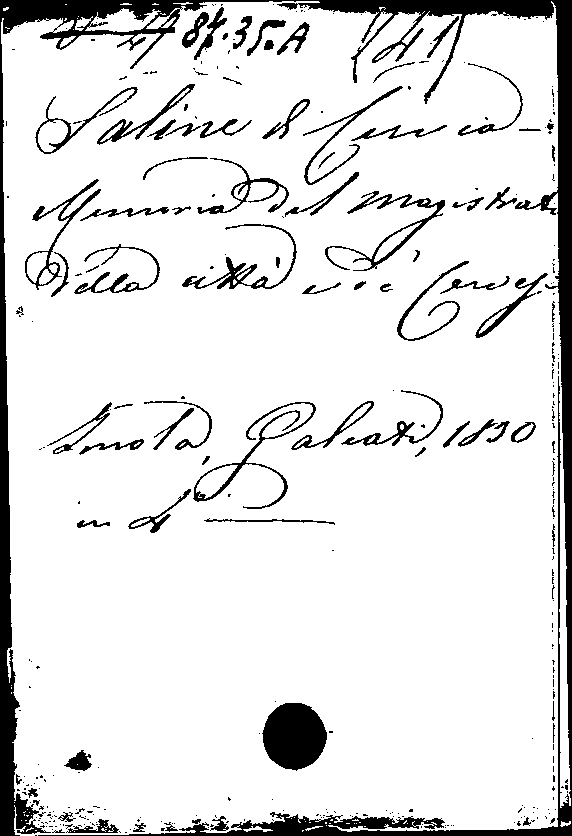 87.35.A (41)
Saline di Cervia -
Memoria del magistrato
della città e di
Imola, Galeati, 1830
in 4°